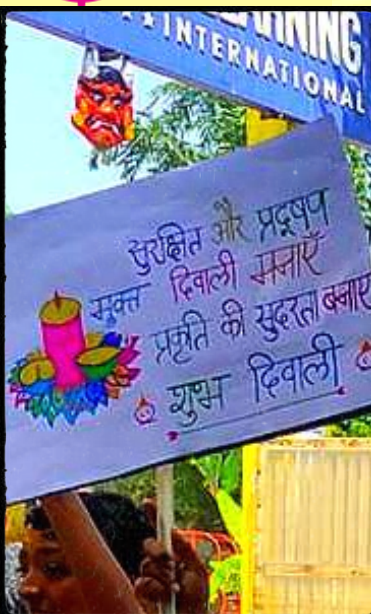 LEARNING
INTERNATIONAL
सुरक्षित और प्रदूषण
मुक्त दिवाली मनाएँ
प्रकृति की सुदंरता बनाएं
शुभ दिवाली